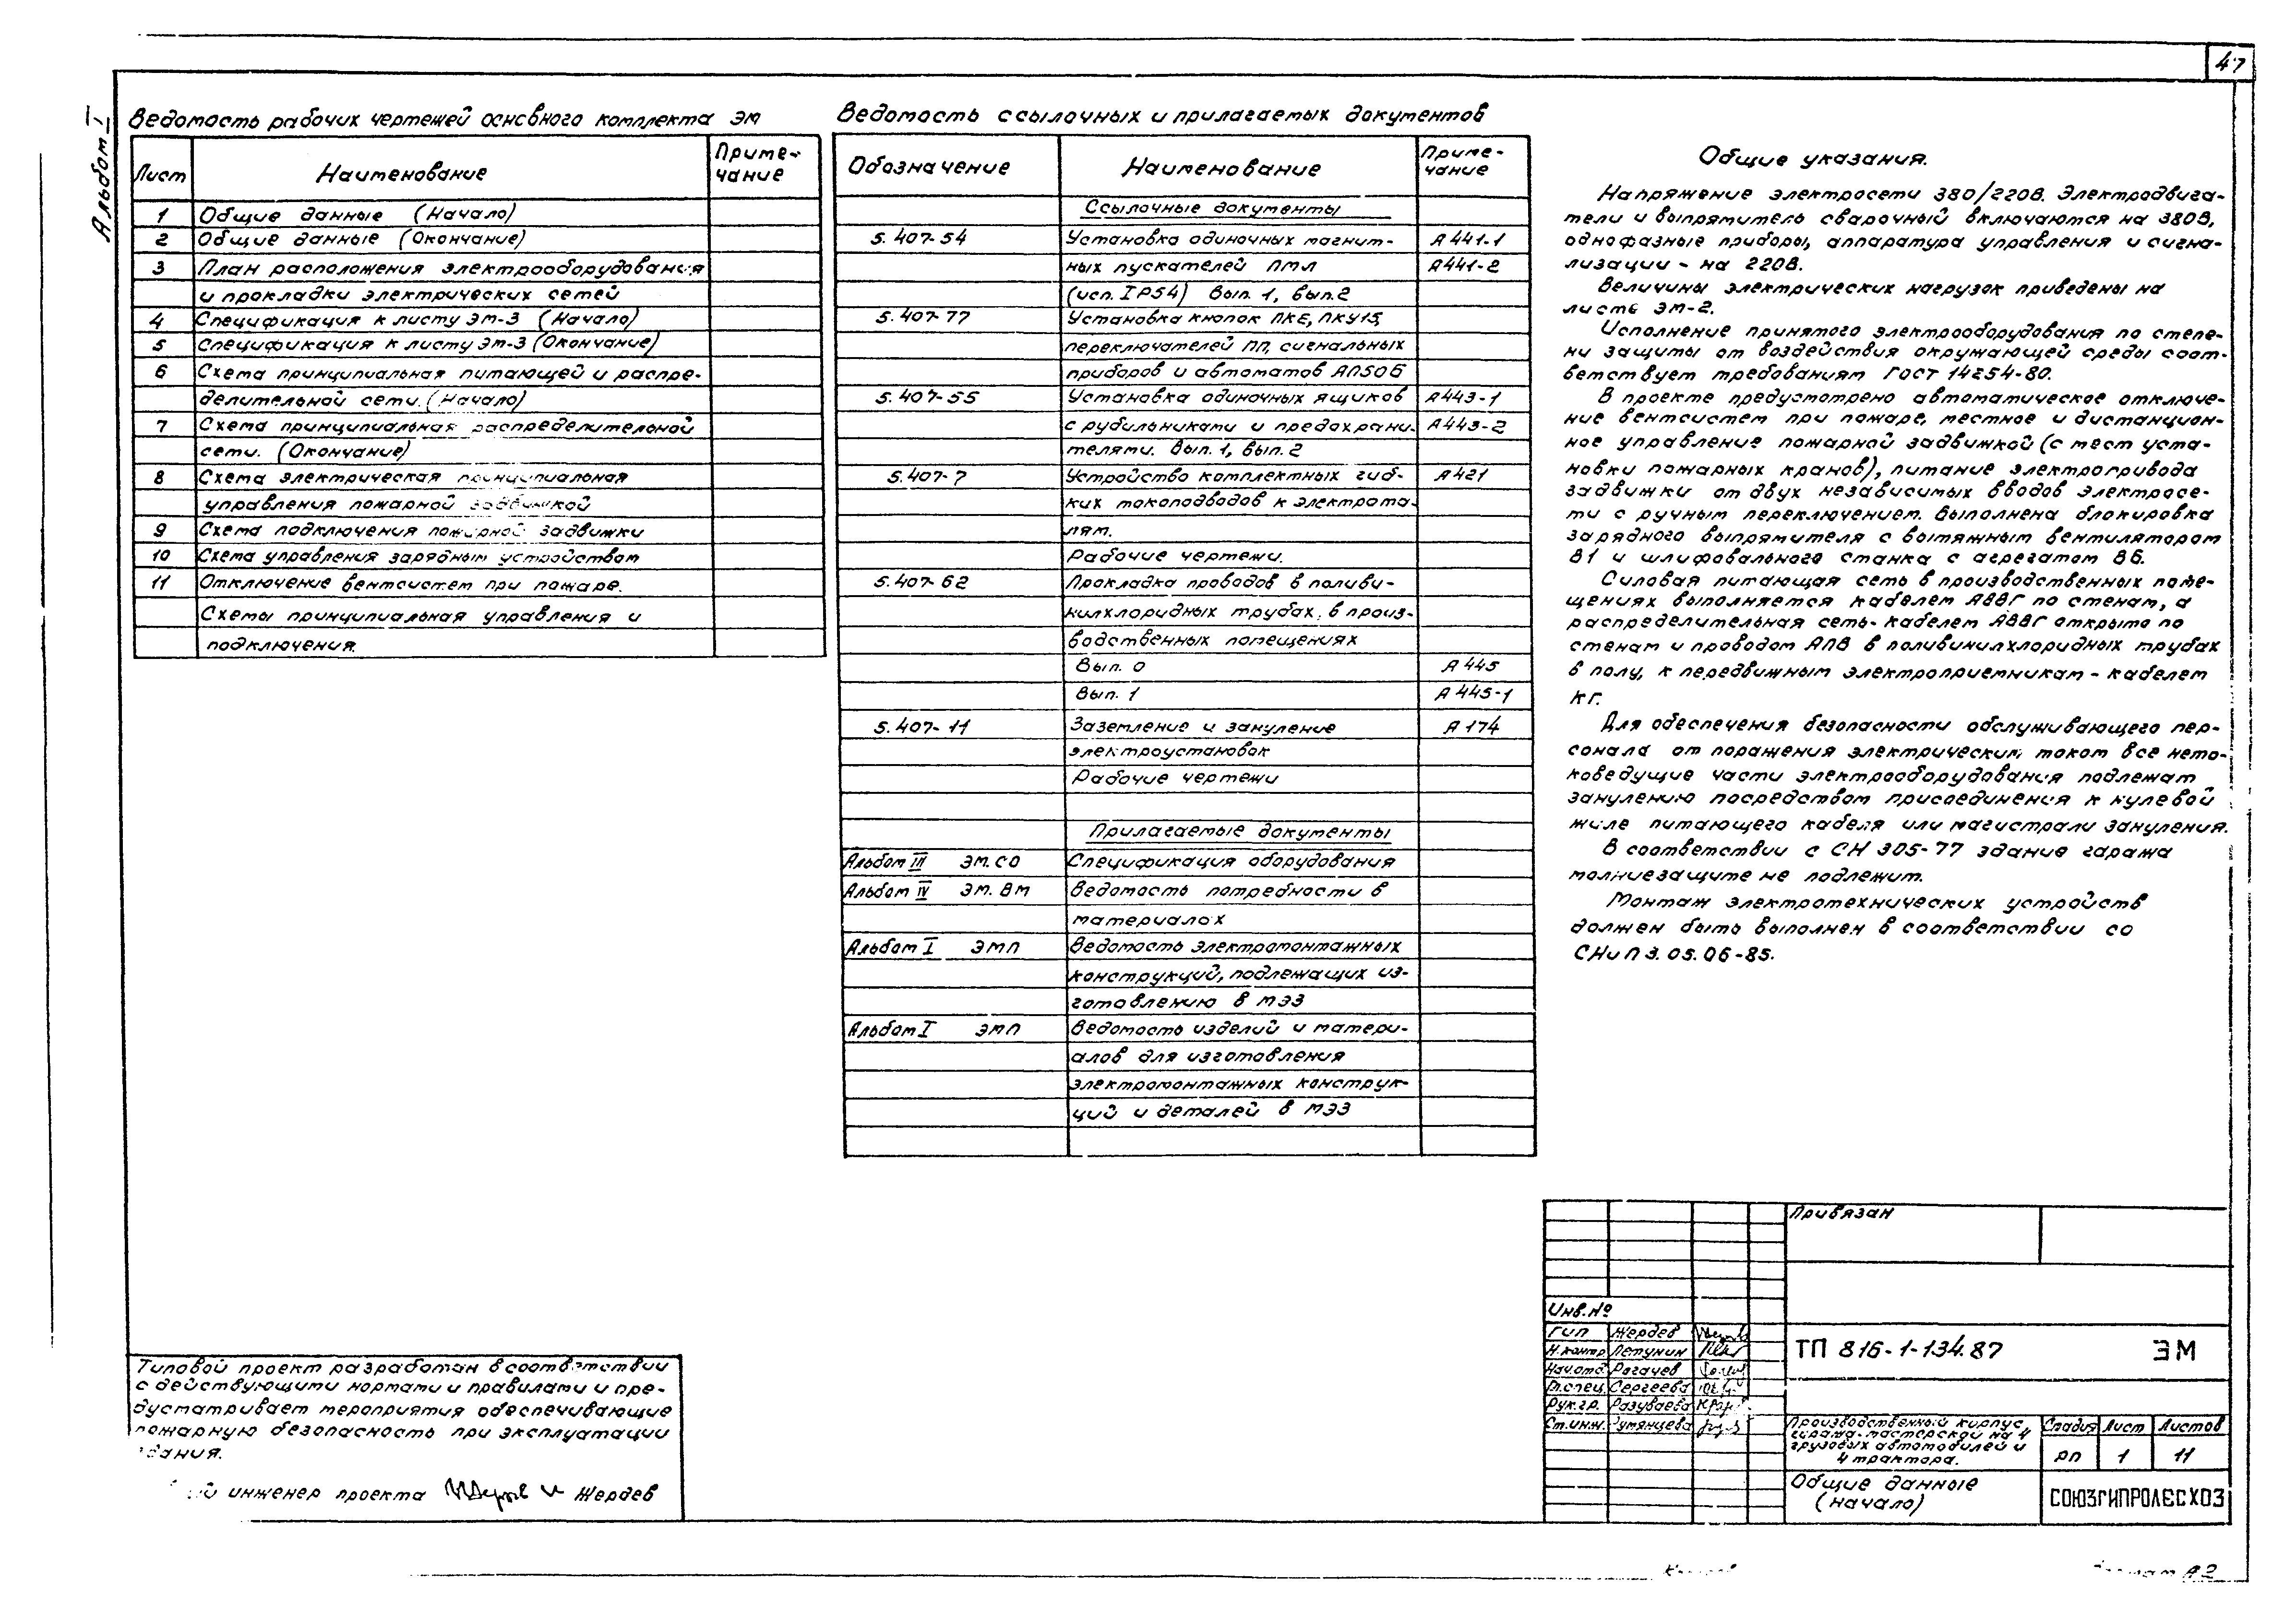 47
Альбом I
Ведомость рабочих чертежей основного комплекта ЭМ
Лист Наименование Приме-
чание
1 Общие данные (Начало)
2 Общие данные (Окончание)
3 План расположения электрооборудования
и прокладки электрических сетей
4 Спецификация к листу ЭМ-3 (Начало)
5 Спецификация к листу ЭМ-3 (Окончание)
6 Схема принципиальная питающей и распре-
делительной сети. (Начало)
7 Схема принципиальная распределительной
сети. (Окончание)
8 Схема электрическая принципиальная
управления пожарной задвижкой
9 Схема подключения пожарной задвижки
10 Схема управления зарядным устройством
11 Отключение вентсистем при пожаре.
Схемы принципиальная управления и
подключения.
Ведомость ссылочных и прилагаемых документов
Обозначение Наименование Приме-
чание
Ссылочные документы
5.407-54 Установка одиночных магнит- А441-1
ных пускателей ПМЛ А441-2
(исп. IP54) Вып. 1, вып. 2
5.407-77 Установка кнопок ПКЕ, ПКУ15,
переключателей ПП, сигнальных
приборов и автоматов АП50Б
5.407-55 Установка одиночных ящиков А443-1
с рубильниками и предохрани- А443-2
телями. Вып. 1, вып. 2
5.407-7 Устройство комплектных гиб- А421
ких токоподводов к электрота-
лям.
Рабочие чертежи.
5.407-62 Прокладка проводов в поливи-
нилхлоридных трубах в произ-
водственных помещениях
Вып. 0 А445
Вып. 1 А445-1
5.407-11 Заземление и зануление А174
электроустановок
Рабочие чертежи
Прилагаемые документы
Альбом III ЭМ.СО Спецификация оборудования
Альбом IV ЭМ.ВМ Ведомость потребности в
материалах
Альбом I ЭМП Ведомость электромонтажных
конструкций, подлежащих из-
готовлению в МЭЗ
Альбом I ЭМП Ведомость изделий и матери-
алов для изготовления
электромонтажных конструк-
ций и деталей в МЭЗ
Общие указания.
Напряжение электросети 380/220В. Электродвига-
тели и выпрямитель сварочный включаются на 380В,
однофазные приборы, аппаратура управления и сигна-
лизации - на 220В.
Величины электрических нагрузок приведены на
листе ЭМ-2.
Исполнение принятого электрооборудования по степе-
ни защиты от воздействия окружающей среды соот-
ветствует требованиям ГОСТ 14254-80.
В проекте предусмотрено автоматическое отключе-
ние вентсистем при пожаре, местное и дистанцион-
ное управление пожарной задвижкой (с мест уста-
новки пожарных кранов), питание электропривода
задвижки от двух независимых вводов электросе-
ти с ручным переключением. Выполнена блокировка
зарядного выпрямителя с вытяжным вентилятором
В1 и шлифовального станка с агрегатом В6.
Силовая питающая сеть в производственных поме-
щениях выполняется кабелем АВВГ по стенам, а
распределительная сеть - кабелем АВВГ открыто по
стенам и проводом АПВ в поливинилхлоридных трубах
в полу, к передвижным электроприемникам - кабелем
КГ.
Для обеспечения безопасности обслуживающего пер-
сонала от поражения электрическим током все нето-
коведущие части электрооборудования подлежат
занулению посредством присоединения к нулевой
жиле питающего кабеля или магистрали зануления.
В соответствии с СН 305-77 здание гаража
молниезащите не подлежит.
Монтаж электротехнических устройств
должен быть выполнен в соответствии со
СНиП 3.05.06-85.
Типовой проект разработан в соответствии
с действующими нормами и правилами и пре-
дусматривает мероприятия обеспечивающие
пожарную безопасность при эксплуатации
здания.
инженер проекта Жердев
Привязан
Инв.№
ГИП Жердев
Н.контр Лепунин
Нач.отд Рогачев
Гл.спец. Сергеева
Рук.гр. Разуваева
Ст.инж. Румянцева
ТП 816-1-134.87 ЭМ
Производственный корпус,
гаража-мастерской на 4
грузовых автомобилей и
4 трактора.
Стадия Лист Листов
РП 1 11
Общие данные
(начало)
СОЮЗГИПРОЛЕСХОЗ
А2